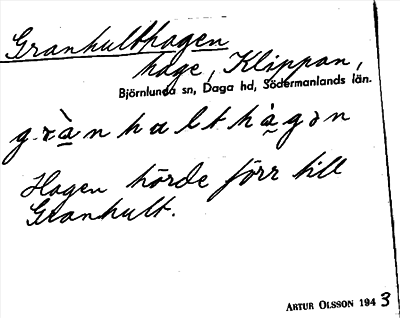 Granhulthagen
hage, Klippan,
Björnlunda sn, Daga hd, Södermanlands län.
grànhulthàgən
Hagen hörde förr till
Granhult.
ARTUR OLSSON 1943